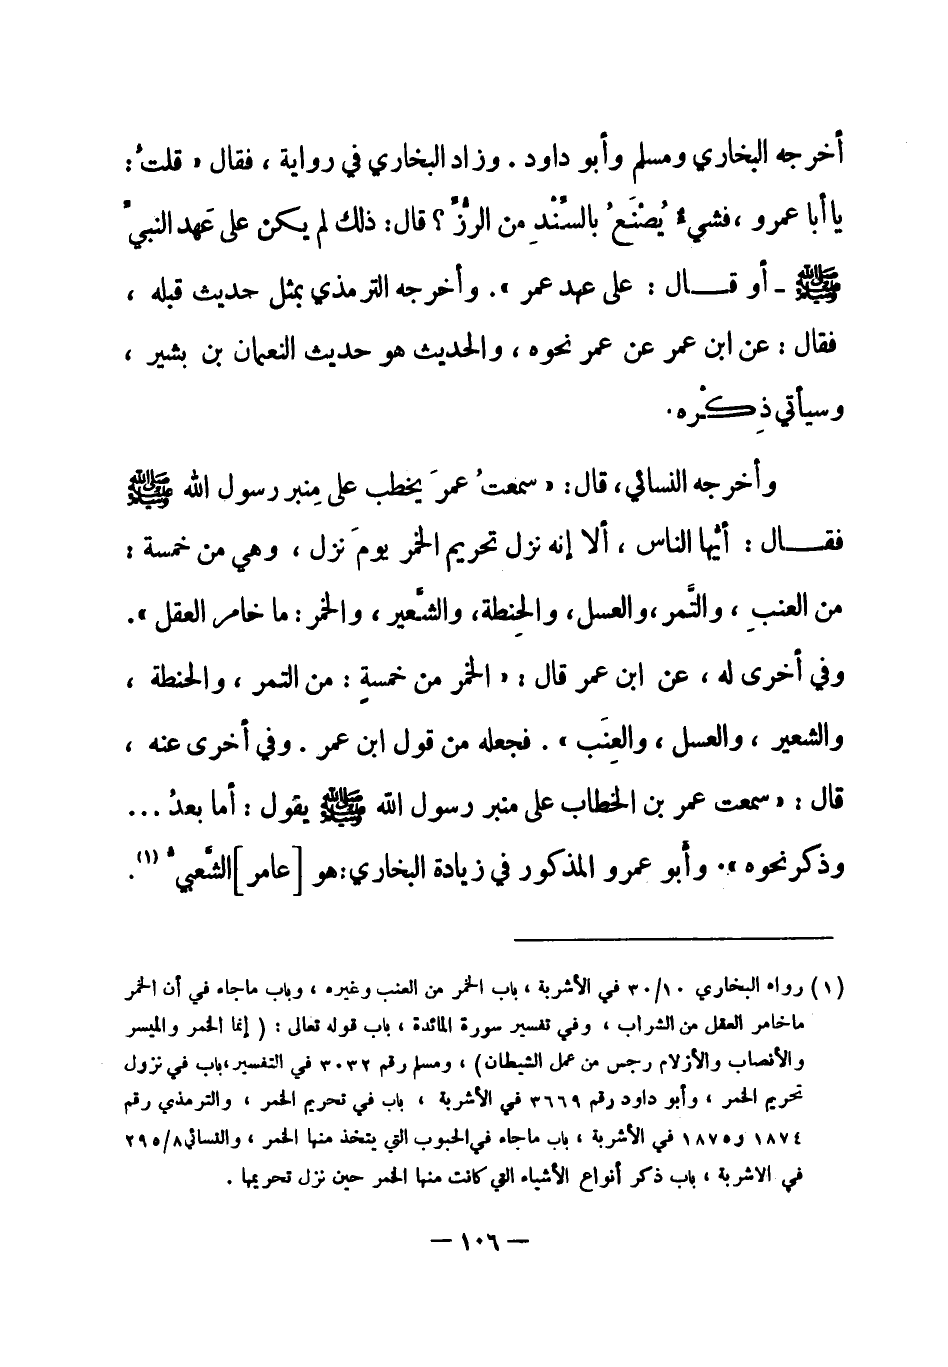 أخرجه البخاري ومسلم وأبو داود . وزاد البخاري في رواية ، فقال « قلتُ :
يا أبا عمرو ، فشيءٌ يُصْنَعُ بالسِّنْدِ من الرُّزِّ ؟ قال : ذلك لم يكن على عَهد النبيِّ
ﷺ - أو قـــال : على عهد عمر » . وأخرجه الترمذي بمثل حديث قبله ،
فقال : عن ابن عمر عن عمر نحوه ، والحديث هو حديث النعمان بن بشير ،
وسيأتي ذِكْره .
وأخرجه النسائي ، قال : « سمعتُ عمرَ يخطب على مِنبر رسول الله ﷺ
فقـــال : أيُّها الناس ، ألا إنه نزل تحريم الخمر يومَ نزل ، وهي من خمسة :
من العنبِ ، والتَّمر ، والعسل ، والحِنطة ، والشَّعير ، والخمر : ما خامر العقل » .
وفي أخرى له ، عن ابن عمر قال : « الخمر من خمسةٍ : من التمر ، والحنطة ،
والشعير ، والعسل ، والعِنَب » . فجعله من قول ابن عمر . وفي أخرى عنه ،
قال : « سمعت عمر بن الخطاب على منبر رسول الله ﷺ يقول : أما بعدُ ...
وذكر نحوه » . وأبو عمرو المذكور في زيادة البخاري : هو [ عامر ] الشَّعبيُّ (١) .
(١) رواه البخاري ٣٠/١٠ في الأشربة ، باب الخمر من العنب وغيره ، وباب ماجاء في أن الخمر
ماخامر العقل من الشراب ، وفي تفسير سورة المائدة ، باب قوله تعالى : ( إنما الخمر والميسر
والأنصاب والأزلام رجس من عمل الشيطان ) ، ومسلم رقم ٣٠٣٢ في التفسير ، باب في نزول
تحريم الخمر ، وأبو داود رقم ٣٦٦٩ في الأشربة ، باب في تحريم الخمر ، والترمذي رقم
١٨٧٤ و١٨٧٥ في الأشربة ، باب ماجاء في الحبوب التي يتخذ منها الخمر ، والنسائي ٢٩٥/٨
في الاشربة ، باب ذكر أنواع الأشياء التي كانت منها الخمر حين نزل تحريمها .
— ١٠٦ —